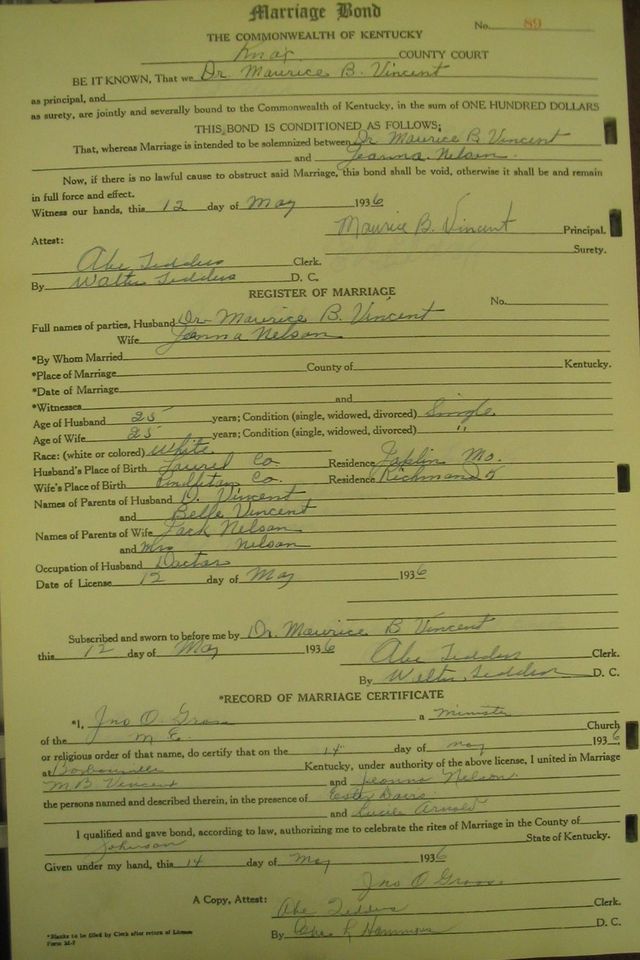 Marriage Bond
No. 89
THE COMMONWEALTH OF KENTUCKY
Knox COUNTY COURT
BE IT KNOWN, That we Dr. Maurice B. Vincent
as principal, and
as surety, are jointly and severally bound to the Commonwealth of Kentucky, in the sum of ONE HUNDRED DOLLARS
THIS BOND IS CONDITIONED AS FOLLOWS:
That, whereas Marriage is intended to be solemnized between Dr Maurice B Vincent
and Jeanna Nelson
Now, if there is no lawful cause to obstruct said Marriage, this bond shall be void, otherwise it shall be and remain
in full force and effect.
Witness our hands, this 12 day of May 1936
Maurice B. Vincent Principal.
Attest: Surety.
Abe Tedders Clerk.
By Walter Tedders D. C.
REGISTER OF MARRIAGE
No.
Full names of parties, Husband Dr Maurice B. Vincent
Wife Jeanna Nelson
*By Whom Married
*Place of Marriage County of Kentucky.
*Date of Marriage
*Witnesses and
Age of Husband 25 years; Condition (single, widowed, divorced) Single
Age of Wife 25 years; Condition (single, widowed, divorced) "
Race: (white or colored) White
Husband's Place of Birth Laurel Co. Residence Joplin Mo.
Wife's Place of Birth Co. Residence Richmond
Names of Parents of Husband D. Vincent
and Belle Vincent
Names of Parents of Wife Jack Nelson
and Mrs Nelson
Occupation of Husband Doctor
Date of License 12 day of May 1936
Subscribed and sworn to before me by Dr. Maurice B Vincent
this 12 day of May 1936 Abe Tedders Clerk.
By Walter Tedders D. C.
*RECORD OF MARRIAGE CERTIFICATE
*I, Jno O. Gross a Minister
of the M. E. Church
or religious order of that name, do certify that on the 14 day of May 1936
at Barbourville Kentucky, under authority of the above license, I united in Marriage
M B Vincent and Jeanna Nelson
the persons named and described therein, in the presence of Davis
and Lucile Arnold
I qualified and gave bond, according to law, authorizing me to celebrate the rites of Marriage in the County of
Johnson State of Kentucky.
Given under my hand, this 14 day of May 1936
Jno O Gross
A Copy, Attest: Abe Tedders Clerk.
By R Hammons D. C.
*Blanks to be filled by Clerk after return of License
Form M-7